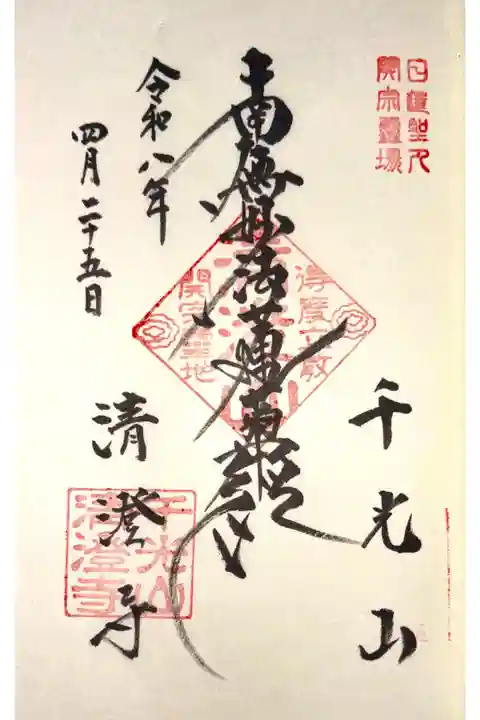 日蓮聖人
開宗靈場
千光山
南無妙法蓮華經
得度立教
開宗聖地
令和八年
四月二十五日
清澄寺
千光山
清澄寺